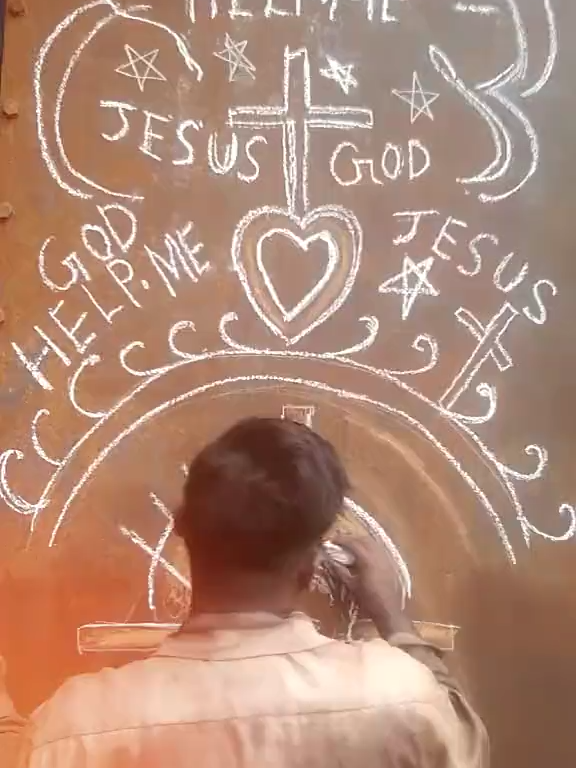 HELP ME
JESUS GOD
GOD
HELP. ME
JESUS